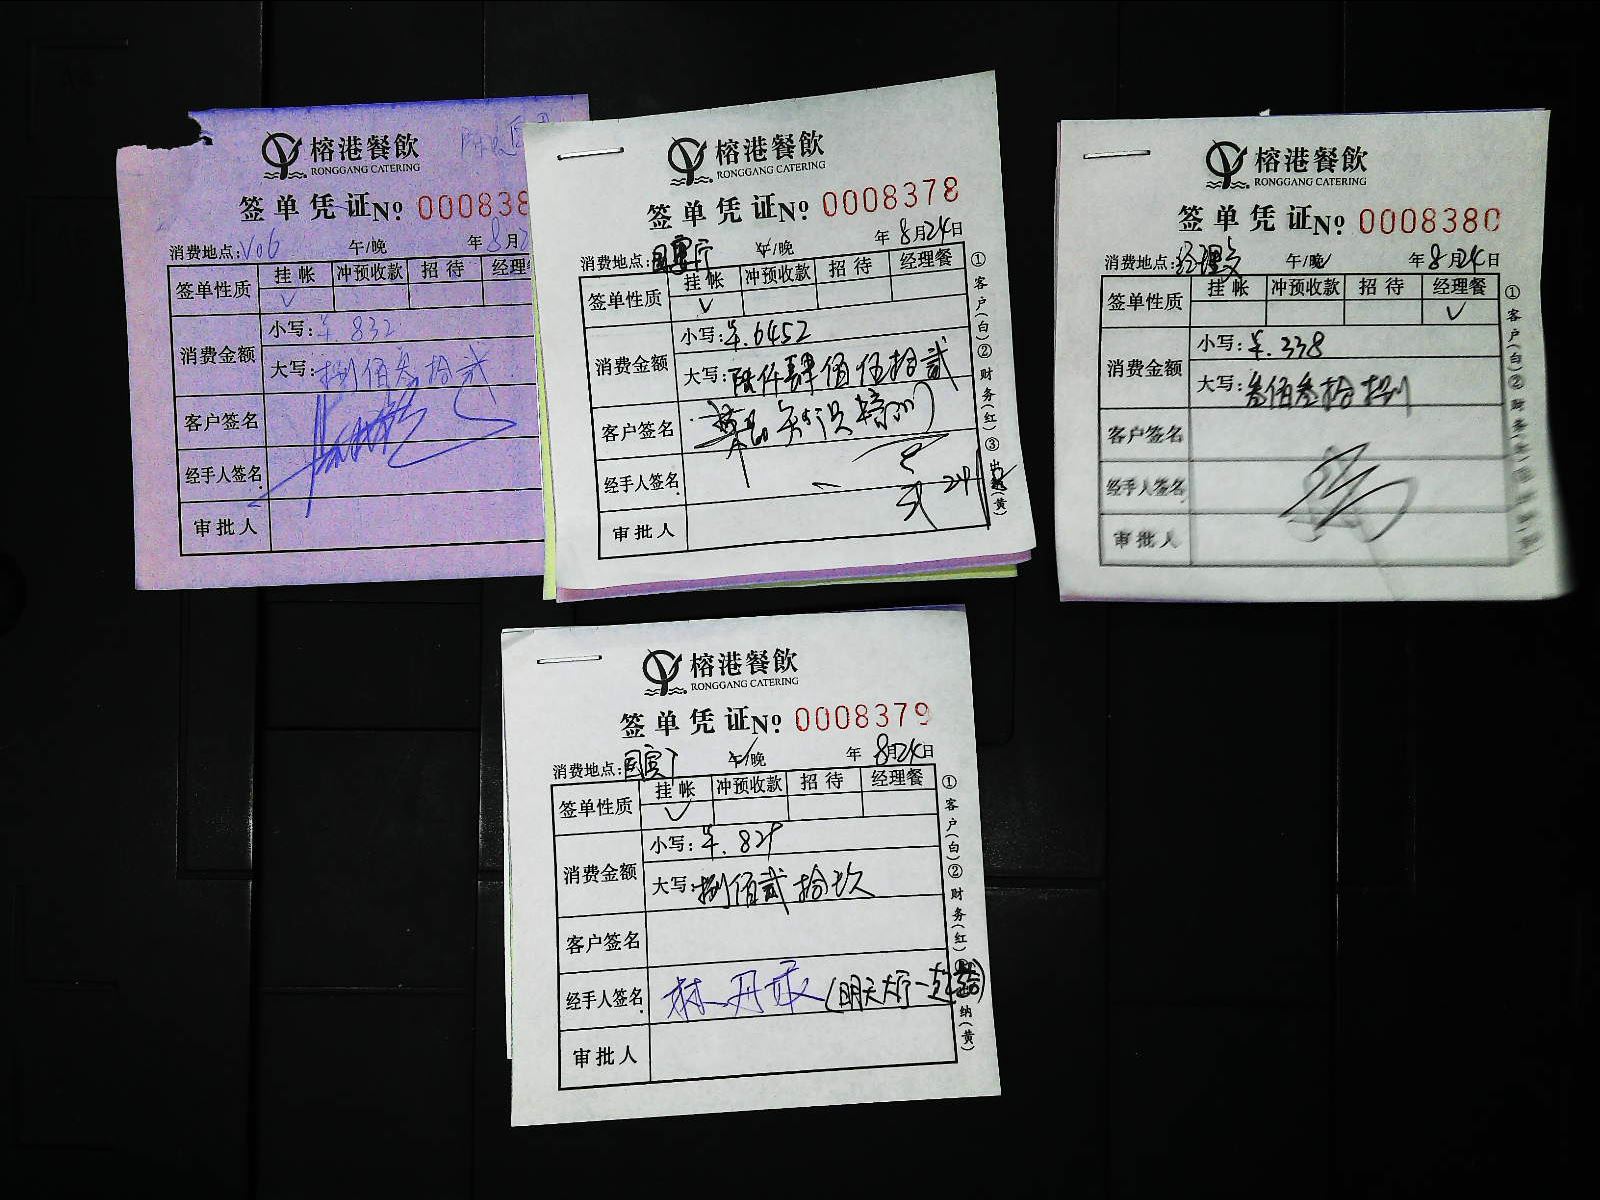 榕港餐飲
RONGGANG CATERING
签单凭证№ 000838
消费地点: V06 午/晚 年 8月2
签单性质 挂帐 冲预收款 招待 经理
√
消费金额 小写: ¥ 832
大写: 捌佰叁拾贰
客户签名
经手人签名
审批人
榕港餐飲
RONGGANG CATERING
签单凭证№ 0008378
消费地点: 午/晚 年 8月24日
签单性质 挂帐 冲预收款 招待 经理餐
√
消费金额 小写: ¥.6452
大写: 陆仟肆佰伍拾贰
客户签名
经手人签名 24/8
审批人
①客户(白)②财务(红)③出纳(黄)
榕港餐飲
RONGGANG CATERING
签单凭证№ 0008380
消费地点: 午/晚 年 8月24日
签单性质 挂帐 冲预收款 招待 经理餐
√
消费金额 小写: ¥.338
大写: 叁佰叁拾捌
客户签名
经手人签名
审批人
①客户(白)②财务(红)
榕港餐飲
RONGGANG CATERING
签单凭证№ 0008379
消费地点: 国宾厅 午/晚 年 8月24日
签单性质 挂帐 冲预收款 招待 经理餐
√
消费金额 小写: ¥.829
大写: 捌佰贰拾玖
客户签名
经手人签名 (明天大厅一起结)
审批人
①客户(白)②财务(红) 纳(黄)